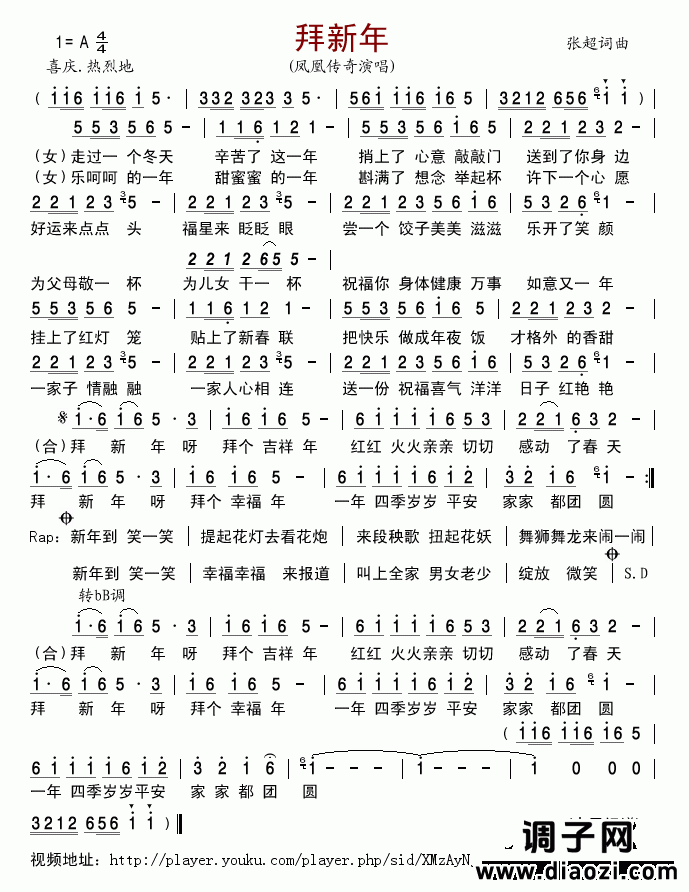 拜新年
1= A 4/4
张超词曲
喜庆.热烈地
(凤凰传奇演唱)
( i i 6 i i 6 i 5· | 3 3 2 3 2 3 2 3 | 5 6 i i i i 6 5 | 3 2 1 2 6 5 6 i i )|
5 5 3 5 6 5 - | 1 1 6 1 2 1 - | 5 5 3 5 6 5 i 6 5 | 1 2 1 2 3 2 -
(女)走过一 个冬天 辛苦了 这一年 捎上了 心意 敲敲门 送到了你身 边
(女)乐呵呵 的一年 甜蜜蜜 的一年 斟满了 想念 举起杯 许下一个心 愿
2 2 1 2 3 5 - | 2 2 1 2 3 5 - | 2 2 1 2 3 5 6 i 6 | 5 5 3 2 6 1 -
好运来点点 头 福星来 眨眨 眼 尝一个 饺子美美 滋滋 乐开了笑 颜
2 2 1 2 6 5 5 - |
为父母敬一 杯 为儿女 干一 杯 祝福你 身体健康 万事 如意又一 年
5 5 3 5 6 5 - | 1 1 6 1 2 1 - | 5 5 3 5 6 5 i 6 5 | 2 2 1 2 3 2 -
挂上了红灯 笼 贴上了新春 联 把快乐 做成年夜 饭 才格外 的香甜
2 2 1 2 3 5 - | 2 2 1 2 3 5 - | 2 2 1 2 3 5 6 i 6 | 5 5 3 2 i -
一家子 情融 融 一家人心相 连 送一份 祝福喜气 洋洋 日子 红艳 艳
i· 6 i 6 5 · 3 | i 6 i 2 i - | 6 i i i i 6 5 3 | 2 2 1 6 3 2 -
(合)拜 新 年 呀 拜个 吉祥 年 红红 火火亲亲 切切 感动 了春 天
i· 6 i 6 5 · 3 | i 6 5 6 i - | 6 i i i i 6 i 2 | 3 2 i 6 i - :||
拜 新 年 呀 拜个 幸福 年 一年 四季岁岁 平安 家家 都团 圆
Rap: 新年到 笑一笑 |提起花灯去看花炮 |来段秧歌 扭起花妖 |舞狮舞龙来闹一闹|
新年到 笑一笑 |幸福幸福 来报道 |叫上全家 男女老少 |绽放 微笑 |S.D
转bB调
i· 6 i 6 5 · 3 | i 6 i 2 i - | 6 i i i i 6 5 3 | 2 2 1 6 3 2 -
(合)拜 新 年 呀 拜个 吉祥 年 红红 火火亲亲 切切 感动 了春 天
i· 6 i 6 5 · 3 | i 6 5 6 i - | 6 i i i i 6 i 2 | 3 2 i 6 i -
拜 新 年 呀 拜个 幸福 年 一年 四季岁岁 平安 家家 都团 圆
( i i 6 i i 6 i 6 5
6 i i i i 6 i 2 | 3 2 i 6 | i - - - | i - - - | 1 0 0 0
一年 四季岁岁平安 家 家 都 团 圆
3 2 1 2 6 5 6 i i )||
调子网
视频地址: http://player.youku.com/player.php/sid/XMzAyN
www.diaozi.com